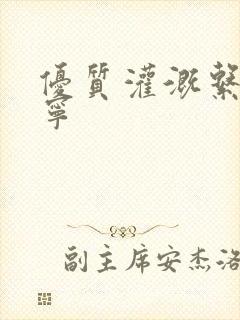 優質灌溉繫
寧
副主席安杰洛